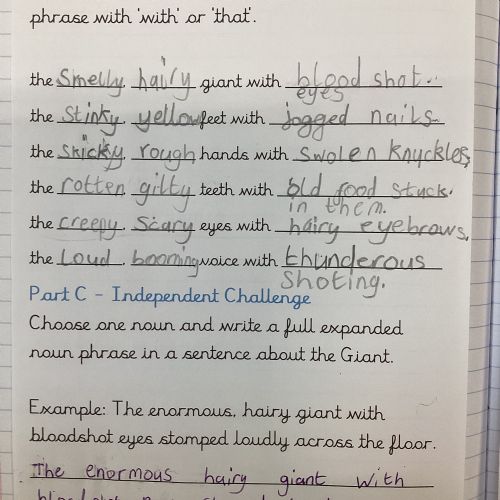 phrase with 'with' or 'that'.
the Smelly, hairy giant with blood shot.
eyes
the Stinky, yellow feet with jogged nails.
the skicky, rough hands with swolen knuckles,
the rotten, gilty teeth with old food stuck.
in them.
the creepy, scary eyes with hairy eyebrows,
the Loud, booming voice with thunderous
Shoting.
Part C - Independent Challenge
Choose one noun and write a full expanded
noun phrase in a sentence about the Giant.
Example: The enormous, hairy giant with
bloodshot eyes stomped loudly across the floor.
The enormous hairy giant with